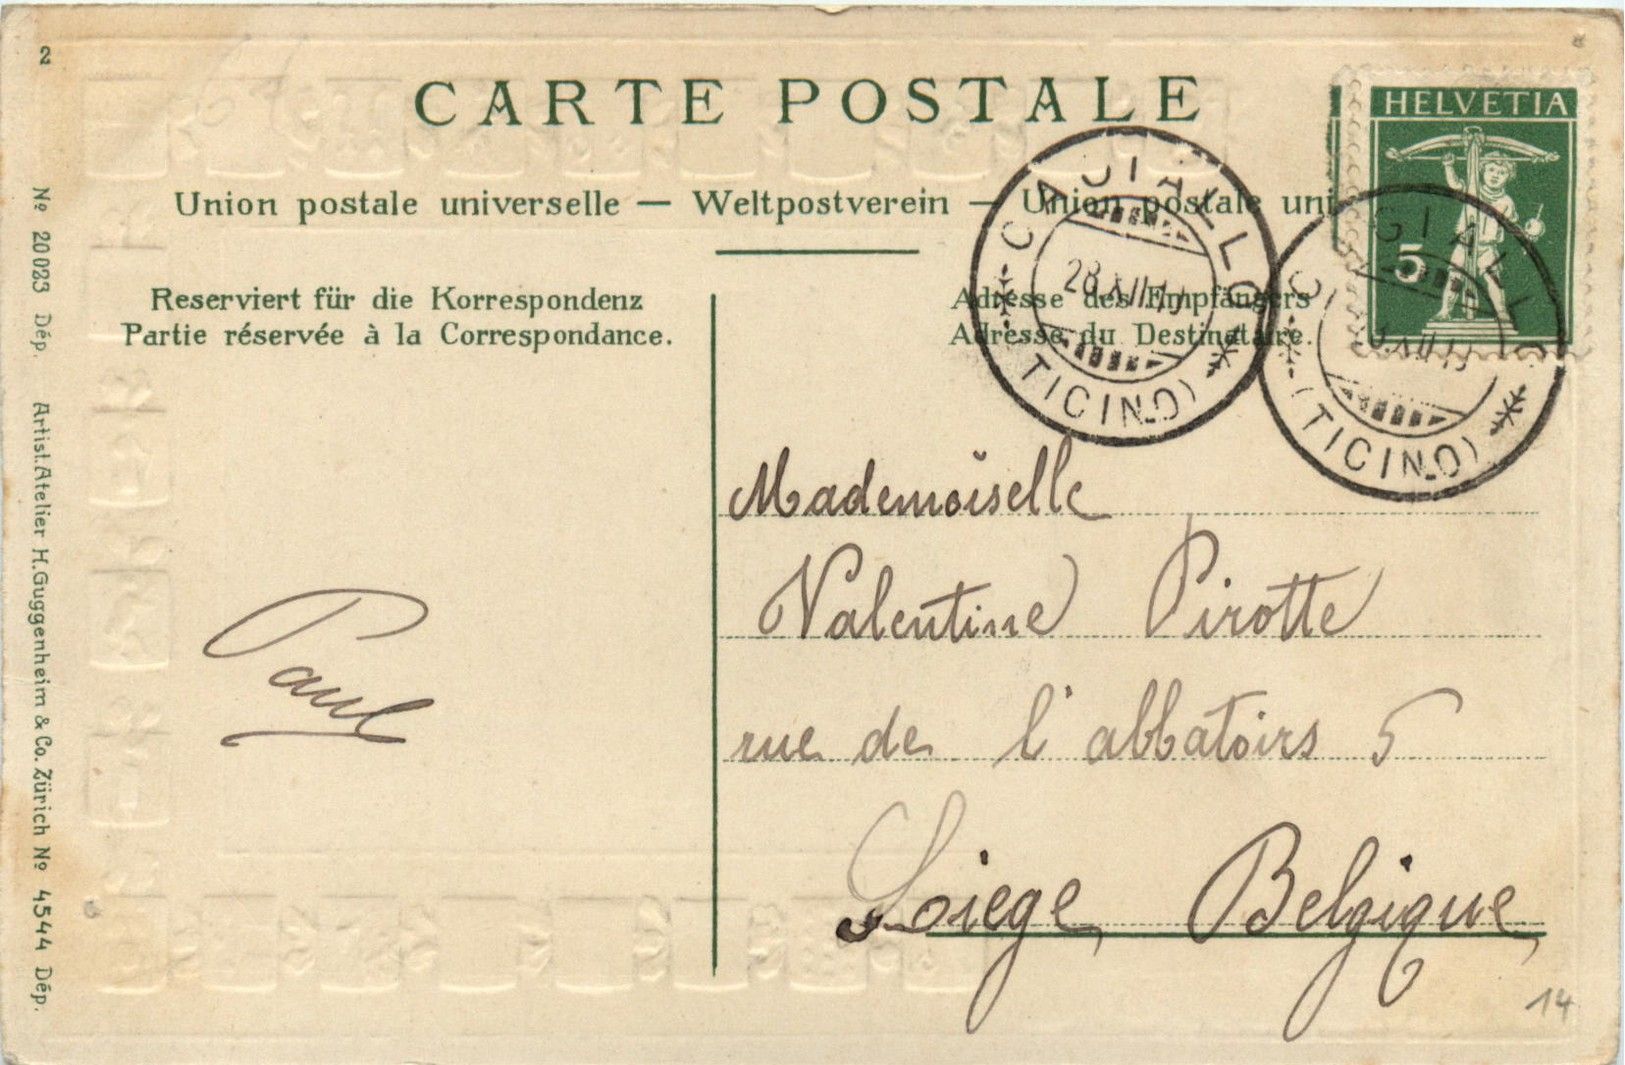 2
CARTE POSTALE
HELVETIA
5
Union postale universelle — Weltpostverein — Union postale uni
CAGIALLO
(TICINO)
GIALLO
(TICINO)
Reserviert für die Korrespondenz
Partie réservée à la Correspondance.
Adresse des Empfängers
Adresse du Destinataire.
Mademoiselle
Valentine Pirotte
rue de l'abbatoirs 5
Liege, Belgique,
Paul
14
№ 20023 Dép. Artist. Atelier H. Guggenheim & Co. Zürich № 4544 Dép.